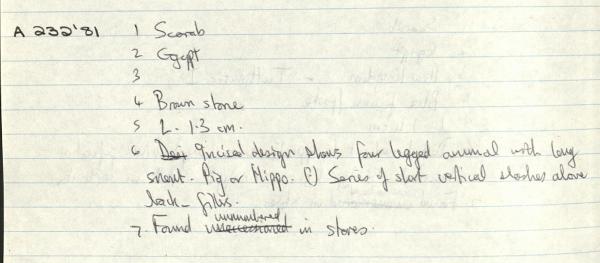 A 232'81 1 Scarab
2 Egypt
3
4 Brown stone
5 L. 1.3 cm.
6 Incised design shows four legged animal with long
snout. Pig or Hippo. (?) Series of short vertical slashes above
back -
7 Found unnumbered in stores.